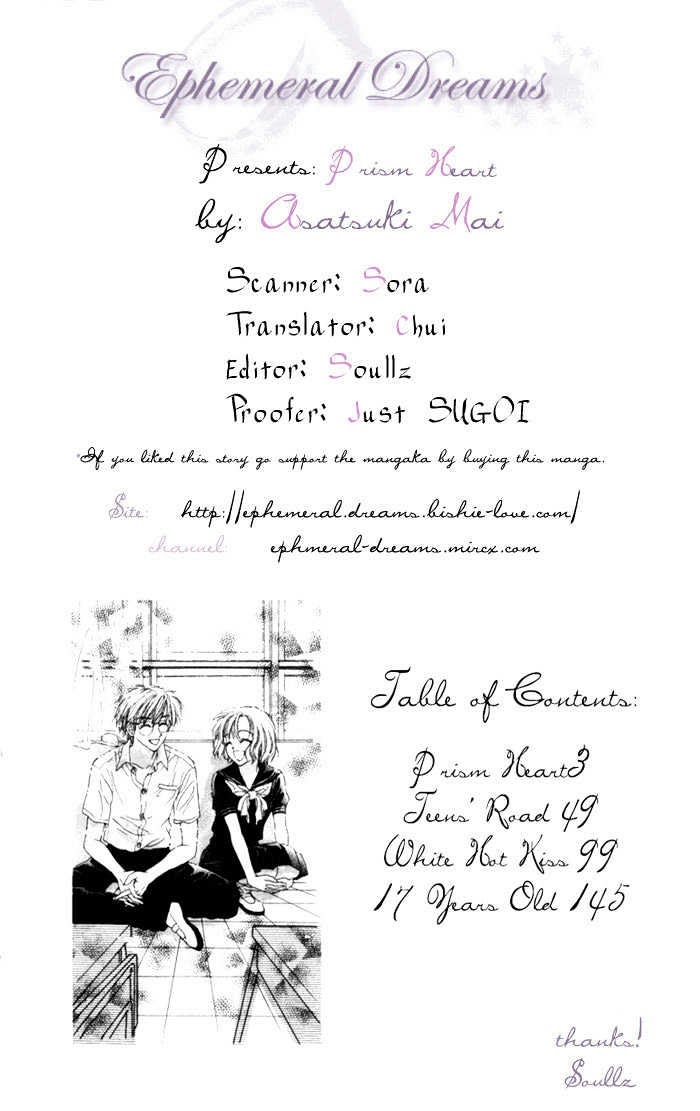 Ephemeral Dreams
Presents: Prism Heart
by: Asatsuki Mai
Scanner: Sora
Translator: Chui
Editor: Soullz
Proofer: Just SUGOI
*If you liked this story go support the mangaka by buying this manga.
Site: http://ephemeral.dreams.bishie-love.com/
channel: ephmeral-dreams.mircx.com
Table of Contents:
Prism Heart3
Teens' Road 49
White Hot Kiss 99
17 Years Old 145
thanks!
Soullz